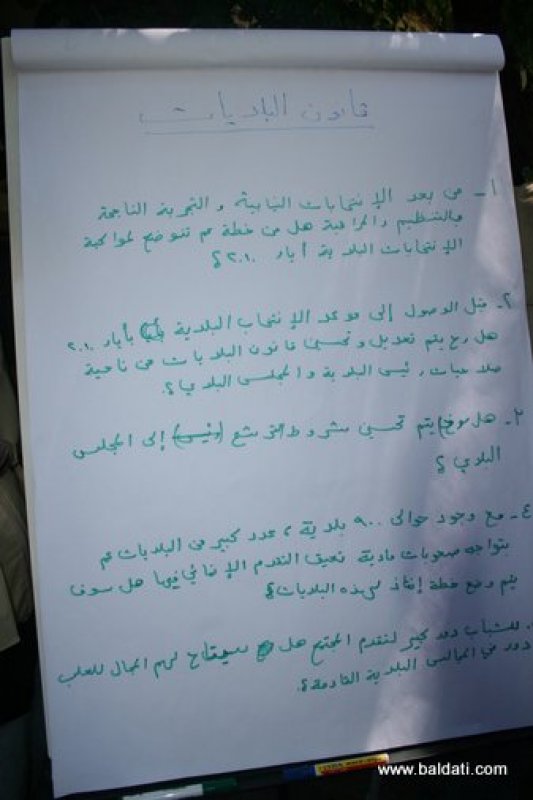 قانون البلديات
1- من بعد الإنتخابات النيابية و التجربة الناجحة
بالتنظيم والمراقبة هل من خطة عم تتوضح لمواكبة
الإنتخابات البلدية أيار ٢٠١٠؟
٢- قبل الوصول إلى موعد الإنتخاب البلدية بأيار ٢٠١٠
هل رح يتم تعديل و تحسين قانون البلديات من ناحية
صلاحيات رئيس البلدية والمجلس البلدي؟
٣- هل سوف يتم تحسين شروط الترشح إلى المجلس
البلدي؟
٤- مع وجود حوالي ٩٠٠ بلدية، عدد كبير من البلديات عم
بتواجه صعوبات مادية تعيق التقدم الإنمائي فيها هل سوف
يتم وضع خطة إنقاذ لهذه البلديات؟
للشباب دور كبير لتقدم المجتمع هل سيتاح لهم المجال للعب
دور في المجالس البلدية القادمة؟
www.baldati.com